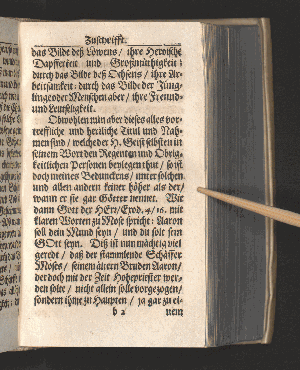 Zuschrifft.
das Bilde deß Löwens / ihre Heroische
Dapfferkeit und Großmütigkeit:
durch das Bilde deß Ochsens / ihre Ar-
beitsamkeit: durch das Bilde der Jüng-
linge oder Menschen aber / ihre Freund-
und Leutseligkeit.
Obwohlen nun aber dieses alles vor-
treffliche und herzliche Titul und Nah-
men sind / welche der H. Geist selbsten in
seinem Wort den Regenten und Obrig-
keitlichen Personen beyleget thut / so ist
doch meines Bedunckens / unter solchen
und allen andern keiner höher als der /
wann er sie gar Götter nennet. Wie
dann Gott der HErr / Exod. 4 / 16. mit
klaren Worten zu Mose spricht: Aaron
soll dein Mund seyn / und du solt sein
GOtt seyn. Diß ist nun mächtig viel
geredt / daß der stammlende Schäffer
Moses / seinem ältern Bruder Aaron /
der doch mit der Zeit Hoherpriester wer-
den solte / nicht allein solle vorgezogen /
sondern ihme zu Haupten / ja gar zu ei-
b 2 nem